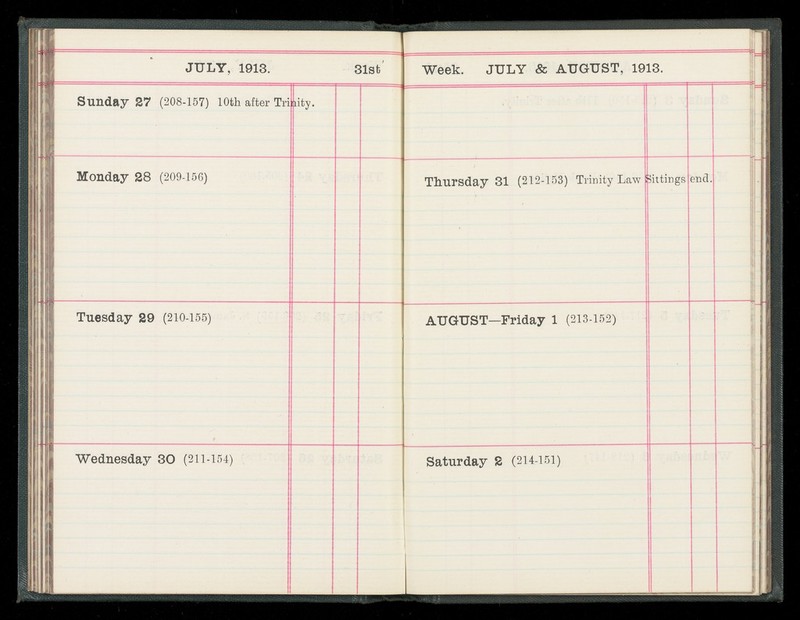 JULY, 1913. 31st
Sunday 27 (208-157) 10th after Trinity.
Monday 28 (209-156)
Tuesday 29 (210-155)
Wednesday 30 (211-154)
Week. JULY & AUGUST, 1913.
Thursday 31 (212-153) Trinity Law Sittings end.
AUGUST—Friday 1 (213-152)
Saturday 2 (214-151)